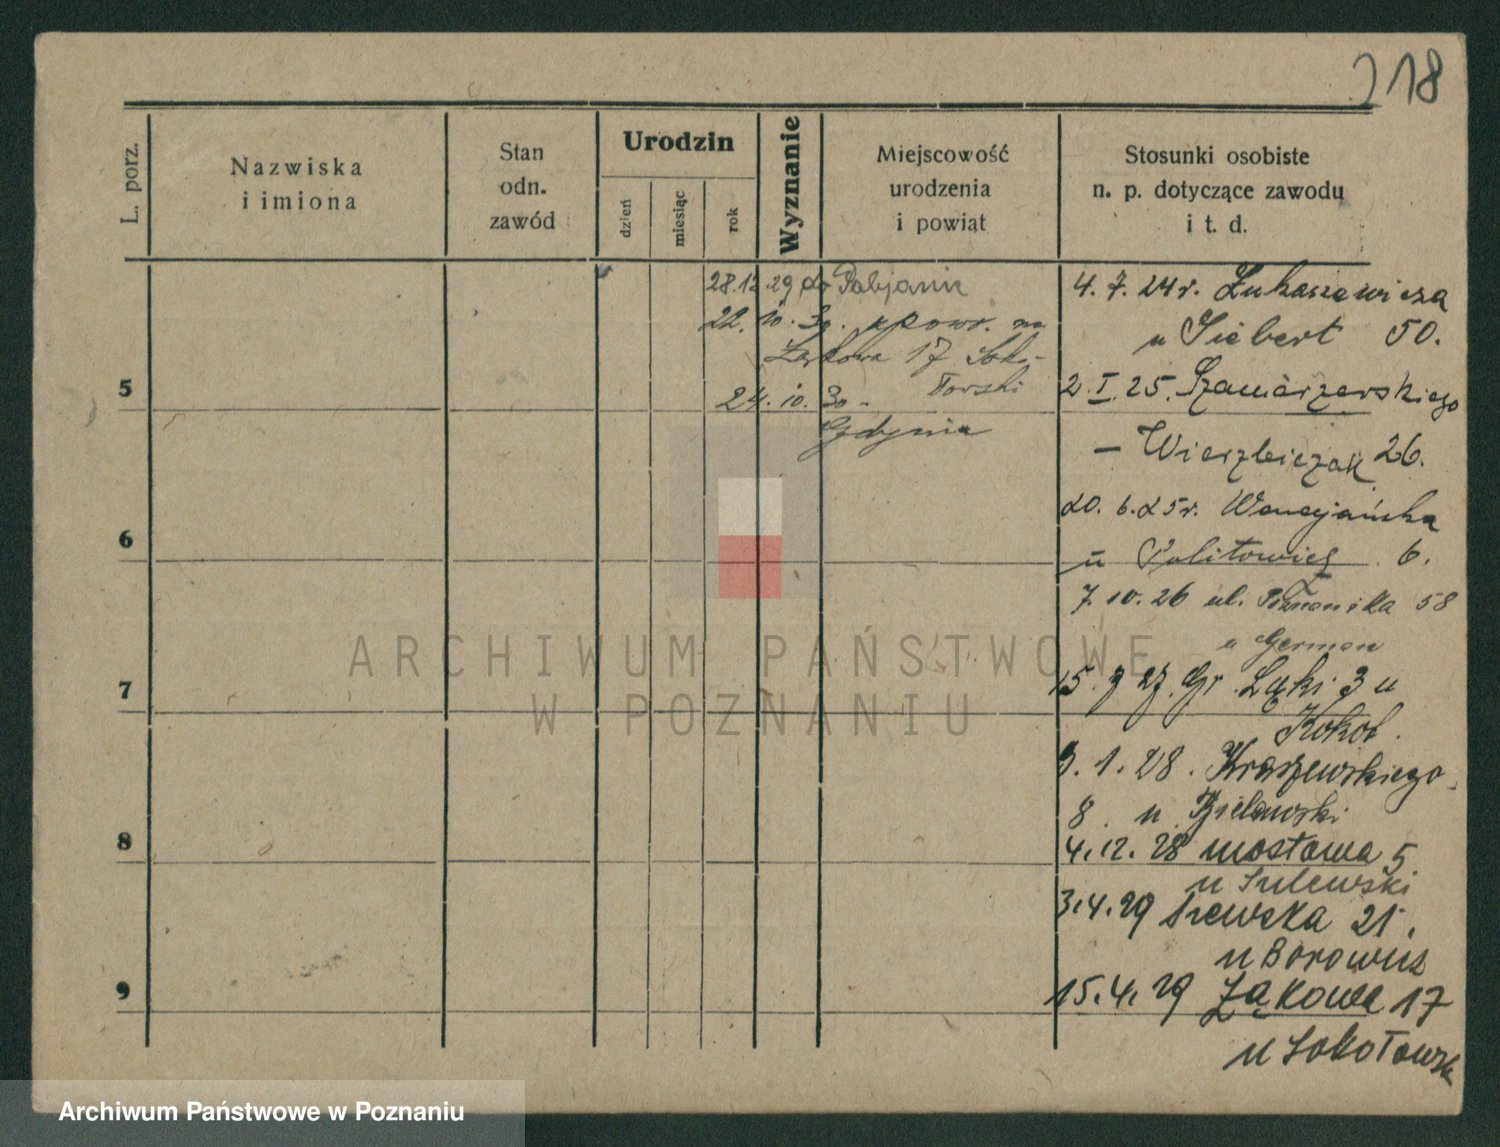 218
L. porz.
Nazwiska
i imiona
Stan
odn.
zawód
Urodzin
dzień
miesiąc
rok
Wyznanie
Miejscowość
urodzenia
i powiat
Stosunki osobiste
n. p. dotyczące zawodu
i t. d.
28.12.29 do Pabjanic
22. 10. 30. z powr. na
Łąkowa 17 Soko-
łowski
24. 10. 30 -
Gdynia
4. 7. 24 r. Łukaszewicza
u Siebert 50.
2. I. 25. Szamarzewskiego
- Wierzbiczak 26.
20. 6. 25 r. Wenecjańska
u Politowicz 6.
7. 10. 26 ul. Poznańska 58
u German
15. 7 27. Gr. Łąki 3 u
Kokot.
3. 1. 28. Kraszewskiego
8. u Bielawski
4. 12. 28 mostowa 5
u Sulewski
3.4.29 Szewska 21.
u Borowicz
15.4.29 Łąkowa 17
u Sokołowsk
5
6
7
8
9
ARCHIWUM PAŃSTWOWE
W POZNANIU
Archiwum Państwowe w Poznaniu